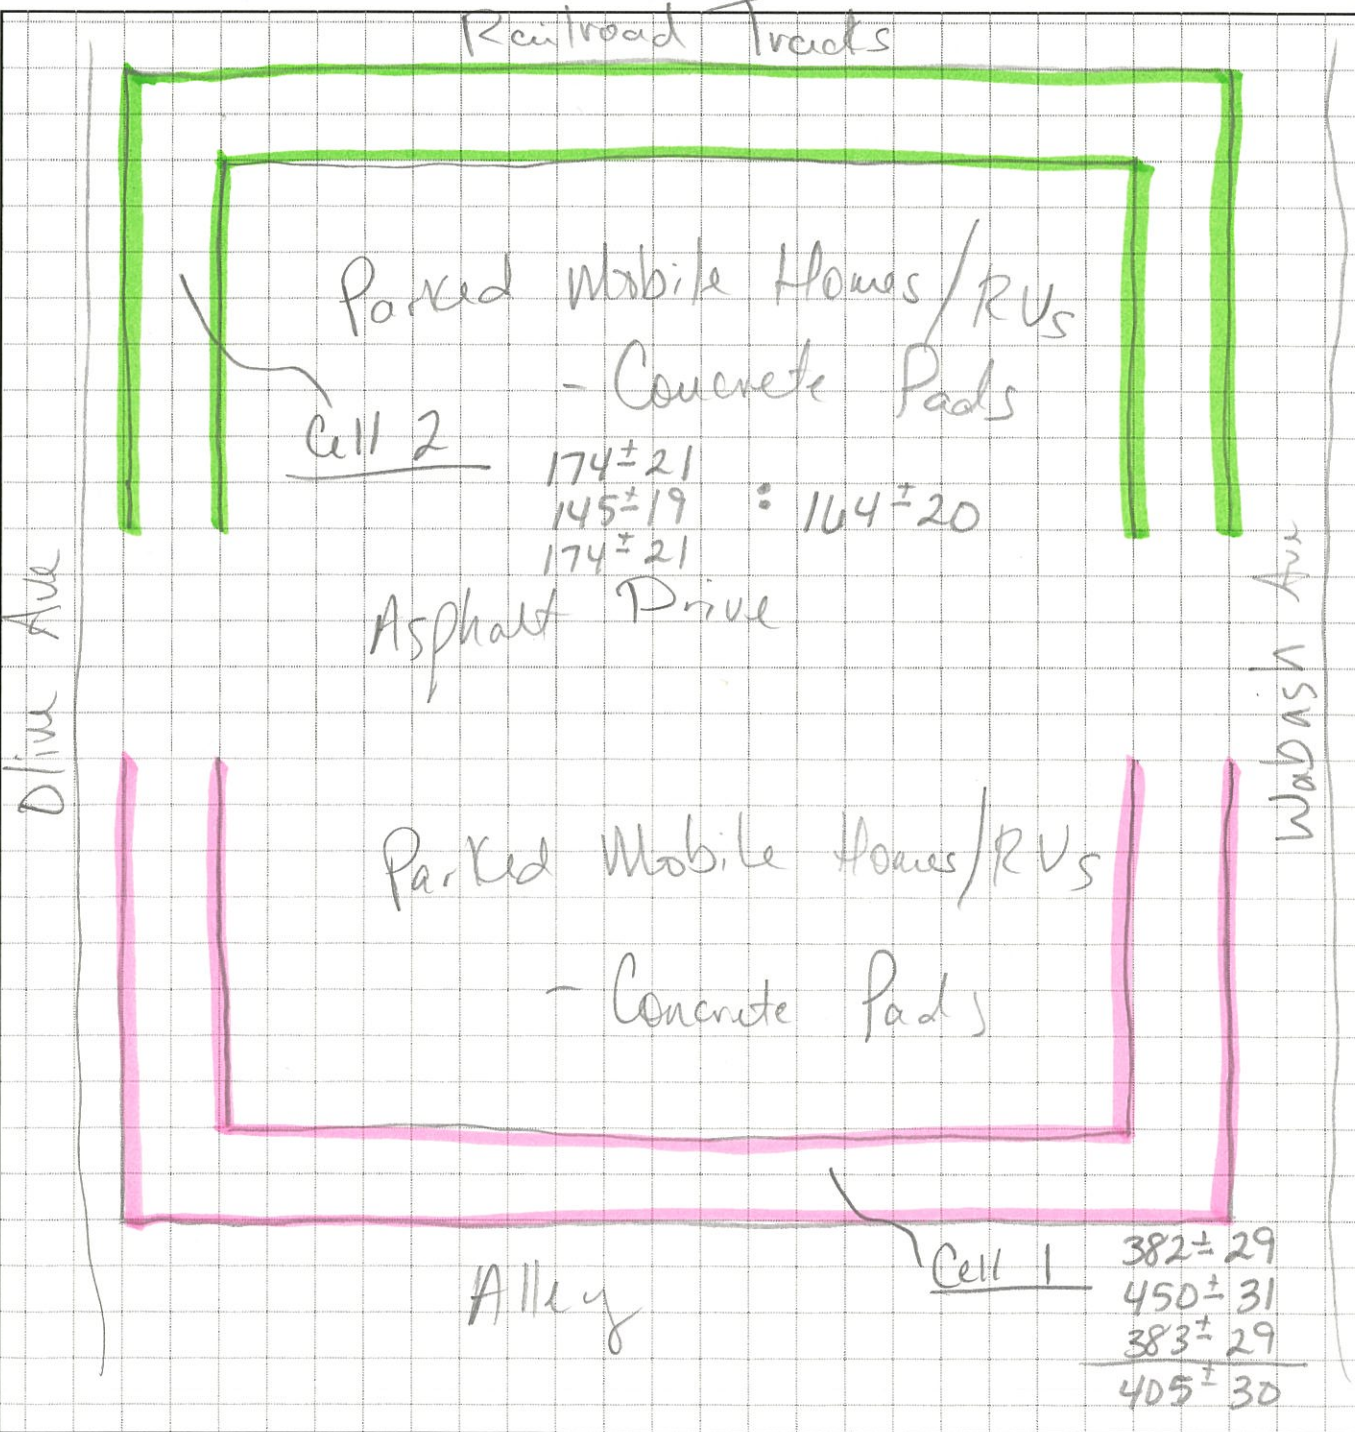 Railroad Tracks
Parked Mobile Homes/RVs
- Concrete Pads
Cell 2
174±21
145±19 : 164±20
174±21
Asphalt Drive
Olive Ave
Wabash Ave
Parked Mobile Homes/RVs
- Concrete Pads
Cell 1
382±29
450±31
383±29
405±30
Alley